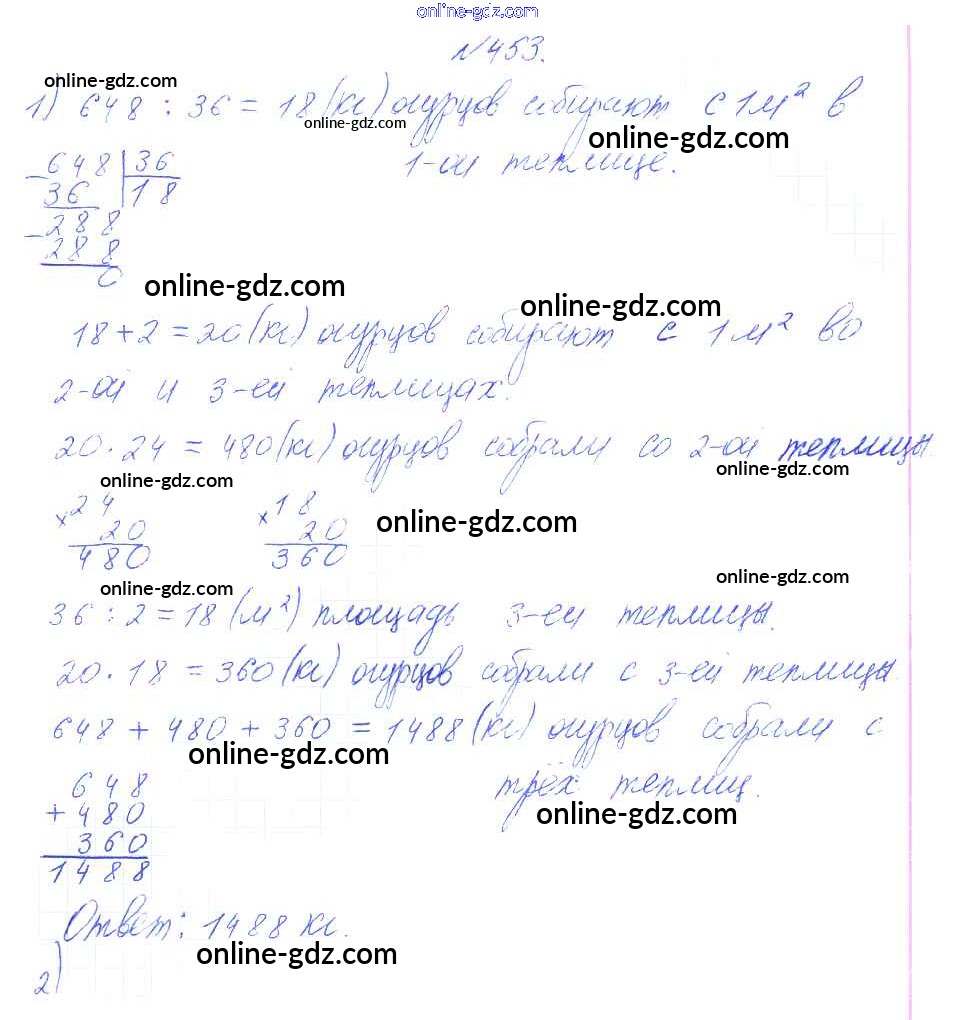 online-gdz.com
№453.
online-gdz.com
1) 648 : 36 = 18 (кг) огурцов собирают с 1 м² в
online-gdz.com
online-gdz.com
1-ой теплице.
648 | 36
− 36 | 18
288
− 288
0
online-gdz.com
online-gdz.com
18 + 2 = 20 (кг) огурцов собирают с 1 м² во
2-ой и 3-ей теплицах.
20 · 24 = 480 (кг) огурцов собрали со 2-ой теплицы.
online-gdz.com
online-gdz.com
× 24 × 18
20 20
480 360
online-gdz.com
online-gdz.com
online-gdz.com
36 : 2 = 18 (м²) площадь 3-ей теплицы.
20 · 18 = 360 (кг) огурцов собрали с 3-ей теплицы.
648 + 480 + 360 = 1488 (кг) огурцов собрали с
online-gdz.com
трёх теплиц.
online-gdz.com
648
+ 480
360
1488
Ответ: 1488 кг.
online-gdz.com
2)